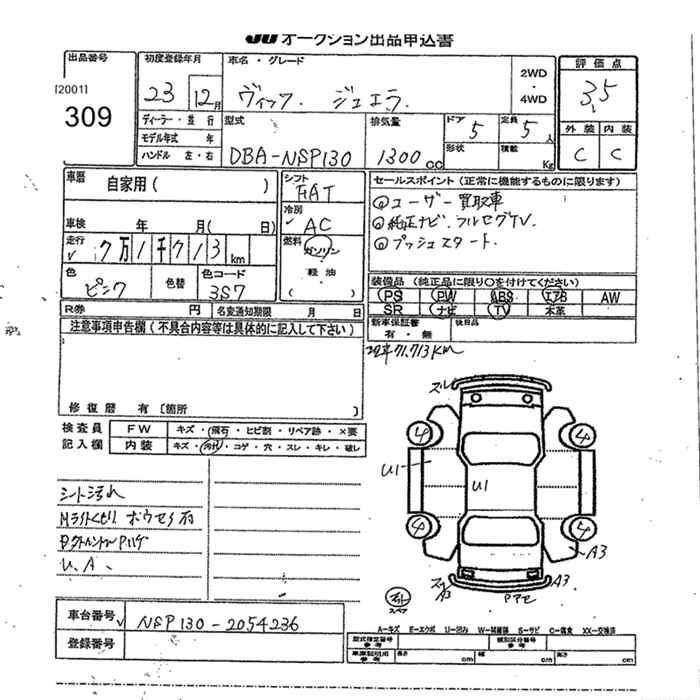 JU オークション出品申込書
出品番号
[20011
309
初度登録年月
23 12月
車名・グレード
ヴィッツ. ジュエラ.
2WD
・
4WD
評価点
3.5
外装 内装
C C
ディーラー・並行
モデル年式 年
ハンドル 左・右
型式
DBA-NSP130
排気量
1300cc
ドア 5
形状
定員 5人
積載 Kg
車歴
自家用( )
車検 年 月( 日)
走行
7万1千713km
色
ピンク
色替
色コード
3S7
シフト
FAT
冷房
AC
燃料
ガソリン
軽油
セールスポイント(正常に機能するものに限ります)
◎ユーザー買取車
◎純正ナビ.フルセグTV.
◎プッシュスタート.
装備品(純正品に限り○を付けてください)
PS PW ABS エアB AW
SR ナビ TV 本革
新車保証書
有・無
後日品
R券 円
名変通知期限 月 日
注意事項申告欄(不具合内容等は具体的に記入して下さい)
71.713Km
修復歴 有〔箇所 〕
検査員
記入欄
FW キズ・飛石・ヒビ割・リペア跡・×要
内装 キズ・汚れ・コゲ・穴・スレ・キレ・破レ
シート汚れ
U.A.
ズレ
4 4
U1
U1
4 4
A3
A3
スペア
A-キズ E-エクボ U-凹み W-補修跡 S-サビ C-腐食 XX-交換済
車台番号
NSP130-2054236
登録番号
型式指定番号
参考
類別区分番号
参考
車庫証明用
参考
長さ cm 幅 cm 高さ cm